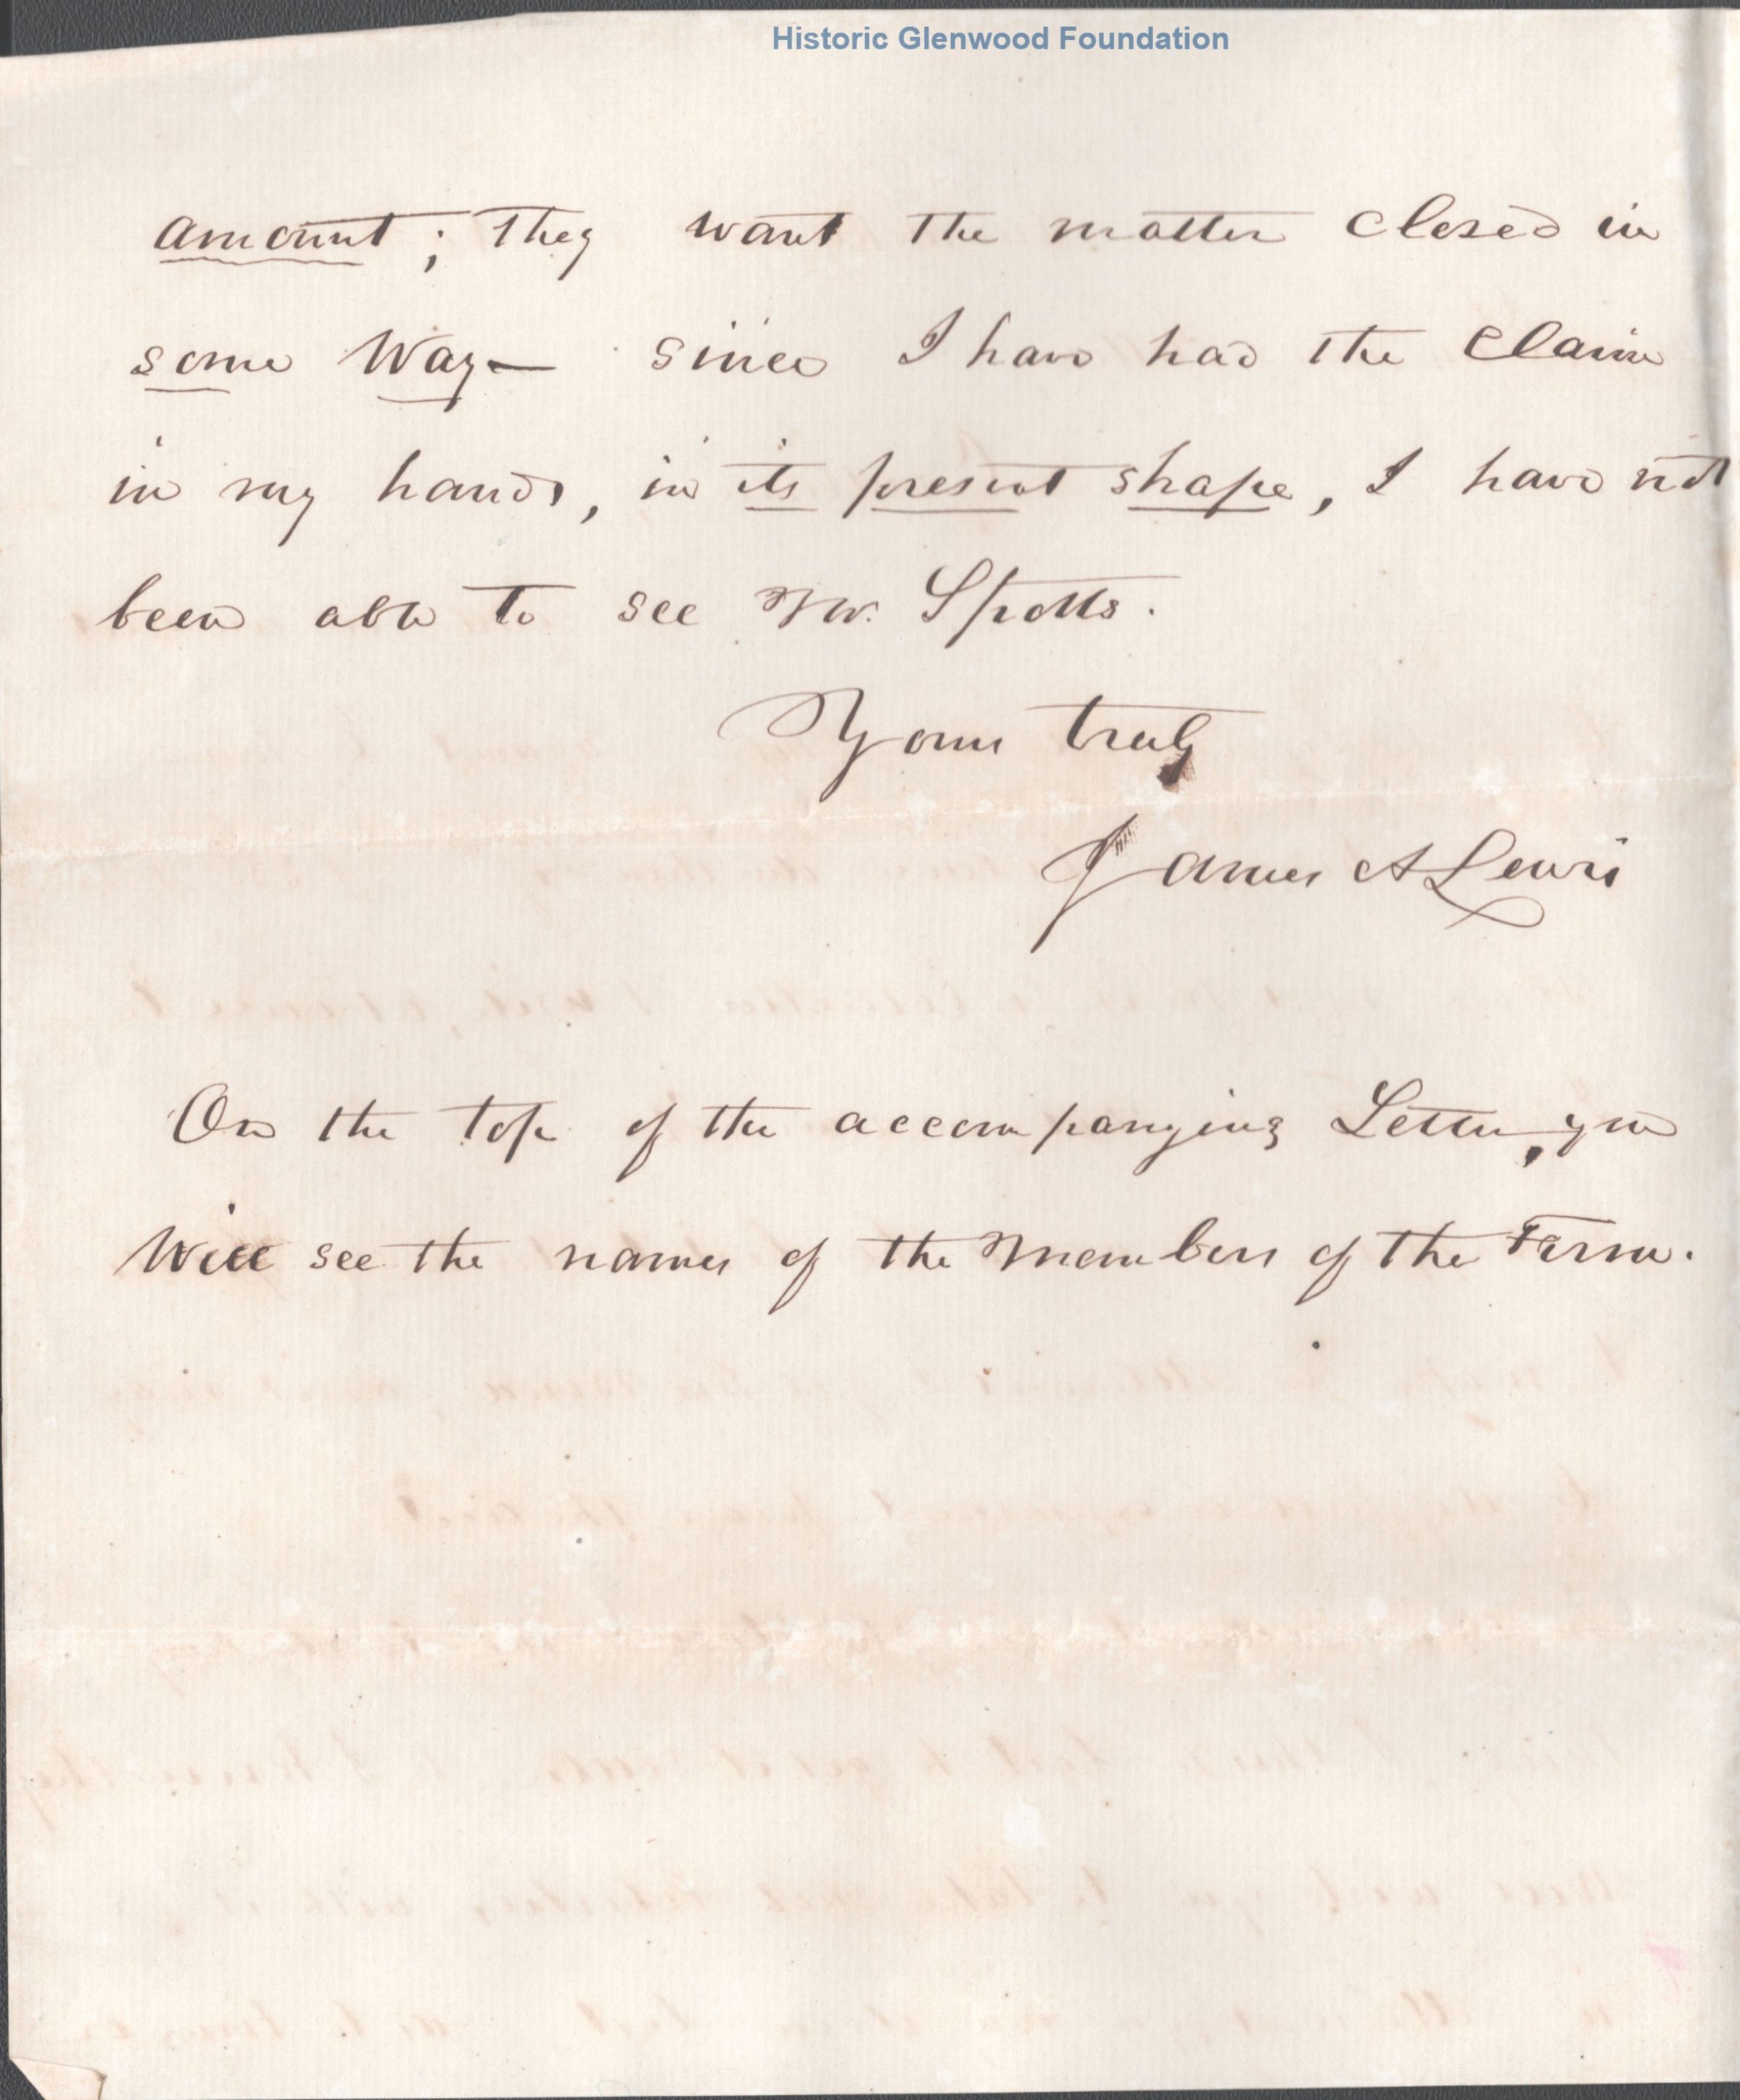 Historic Glenwood Foundation
amount; they want the matter closed in
some way— since I have had the claim
in my hands, in its present shape, I have not
been able to see Mr. Spotts.
Yours truly
James A Lewis
On the top of the accompanying Letter, you
will see the names of the Members of the Firm.